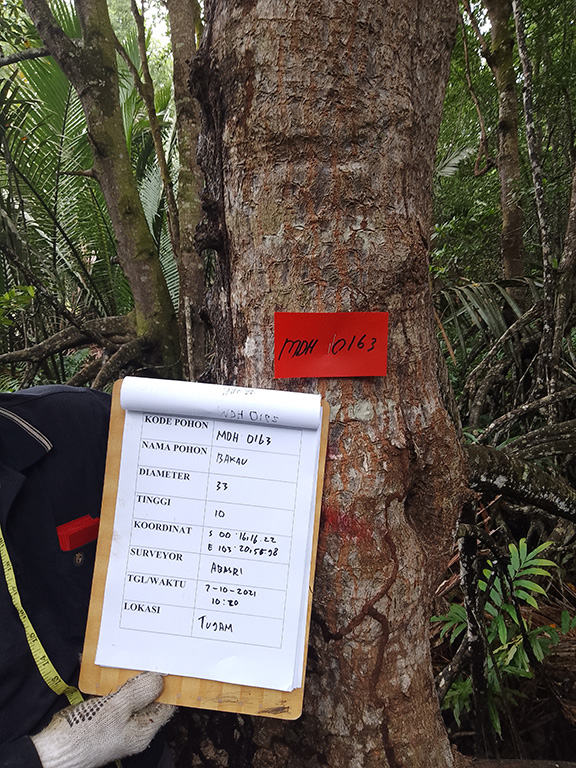 MDH 0163
KODE POHON MDH 0163
NAMA POHON BAKAU
DIAMETER 33
TINGGI 10
KOORDINAT S 00.16.16.22
E 103.20.58.98
SURVEYOR ABASRI
TGL/WAKTU 7-10-2021
10:20
LOKASI TUJAM